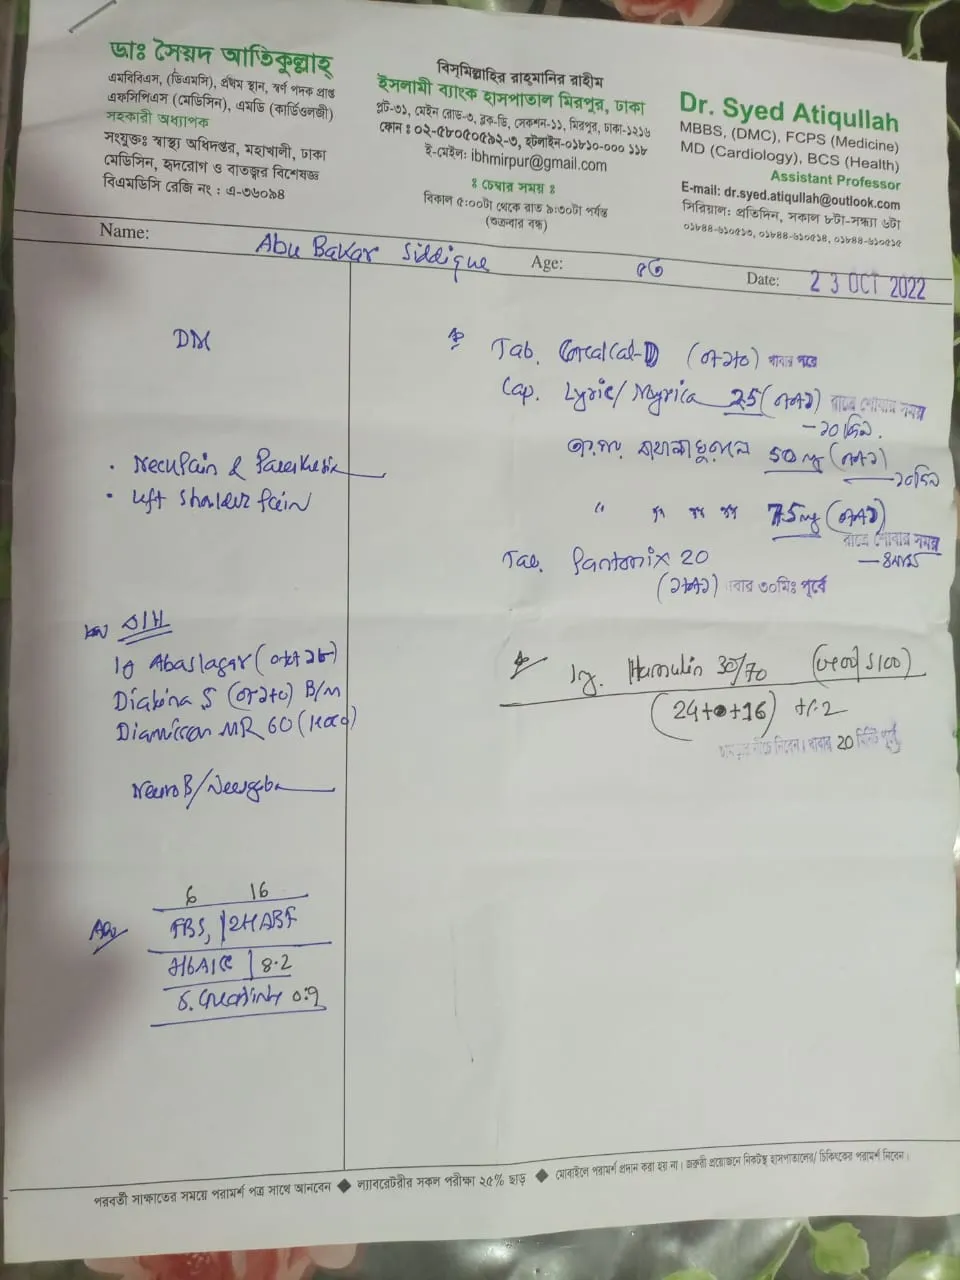 ডাঃ সৈয়দ আতিকুল্লাহ্
এমবিবিএস, (ডিএমসি), প্রথম স্থান, স্বর্ণ পদক প্রাপ্ত
এফসিপিএস (মেডিসিন), এমডি (কার্ডিওলজী)
সহকারী অধ্যাপক
সংযুক্তঃ স্বাস্থ্য অধিদপ্তর, মহাখালী, ঢাকা
মেডিসিন, হৃদরোগ ও বাতজ্বর বিশেষজ্ঞ
বিএমডিসি রেজি নং : এ-৩৬০৯৪
বিস্‌মিল্লাহির রাহ্‌মানির রাহীম
ইসলামী ব্যাংক হাসপাতাল মিরপুর, ঢাকা
প্লট-৩১, মেইন রোড-৩, ব্লক-ডি, সেকশন-১১, মিরপুর, ঢাকা-১২১৬
ফোন : ০২-৫৮০৫০৫৯২-৩, হটলাইন-০১৮১০-০০০ ১১৮
ই-মেইল: ibhmirpur@gmail.com
ঃ চেম্বার সময় ঃ
বিকাল ৫:০০টা থেকে রাত ৯:৩০টা পর্যন্ত
(শুক্রবার বন্ধ)
Dr. Syed Atiqullah
MBBS, (DMC), FCPS (Medicine)
MD (Cardiology), BCS (Health)
Assistant Professor
E-mail: dr.syed.atiqullah@outlook.com
সিরিয়াল: প্রতিদিন, সকাল ৮টা-সন্ধ্যা ৬টা
০১৮৪৪-৬১০৫১৩, ০১৮৪৪-৬১০৫১৪, ০১৮৪৪-৬১০৫১৫
Name: Abu Bakar Siddique Age: ৫৩ Date: 23 OCT 2022
DM
• Neck Pain & Paresthesia
• Left Shoulder Pain
Inj Abaslagar
Diabina 5 (০+১+০) B/M
Diamicron MR 60
Neuro B/
6 16
FBS, | 2HABF
HbA1c | 8.2
S. Creatinine 0.9
Tab. Coralcal-D (০+১+০) খাবার পরে
Cap. Lyric/ Myrica 25 (০+০+১) রাত্রে শোবার সময়
— ২০ দিন.
50 mg (০+০+১)
— ২০ দিন
" " " " 75 mg (০+০+১)
রাত্রে শোবার সময়
Tab. Pantonix 20
(১+০+১) খাবার ৩০মিঃ পূর্বে
Inj. Humulin 30/70 (100)
(24+0+16) +/- 2
নিবেন। খাবার 20 মিনিট পূর্বে
পরবর্তী সাক্ষাতের সময়ে পরামর্শ পত্র সাথে আনবেন ◆ ল্যাবরেটরীর সকল পরীক্ষা ২৫% ছাড় ◆ মোবাইলে পরামর্শ প্রদান করা হয় না। জরুরী প্রয়োজনে নিকটস্থ হাসপাতালের/ চিকিৎকের পরামর্শ নিবেন।